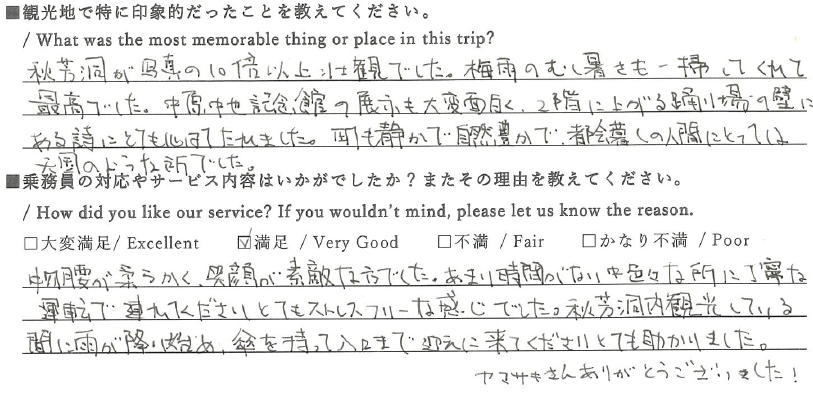 ■観光地で特に印象的だったことを教えてください。
/ What was the most memorable thing or place in this trip?
秋芳洞が写真の10倍以上壮観でした。梅雨のむし暑さも一掃してくれて
最高でした。中原中也記念館の展示も大変面白く、2階に上がる踊り場の壁に
ある詩にとても心打たれました。町も静かで自然豊かで、都会暮しの人間にとっては
天国のような所でした。
■乗務員の対応やサービス内容はいかがでしたか？またその理由を教えてください。
/ How did you like our service? If you wouldn't mind, please let us know the reason.
□大変満足/ Excellent ☑満足 / Very Good □不満 / Fair □かなり不満 / Poor
物腰が柔らかく、笑顔が素敵な方でした。あまり時間がない中色々な所に丁寧な
運転で連れてくださいとてもストレスフリーな感じでした。秋芳洞内観光している
間に雨が降り始め、傘を持って入口まで迎えに来てくださいとても助かりました。
ヤマサキさんありがとうございました！